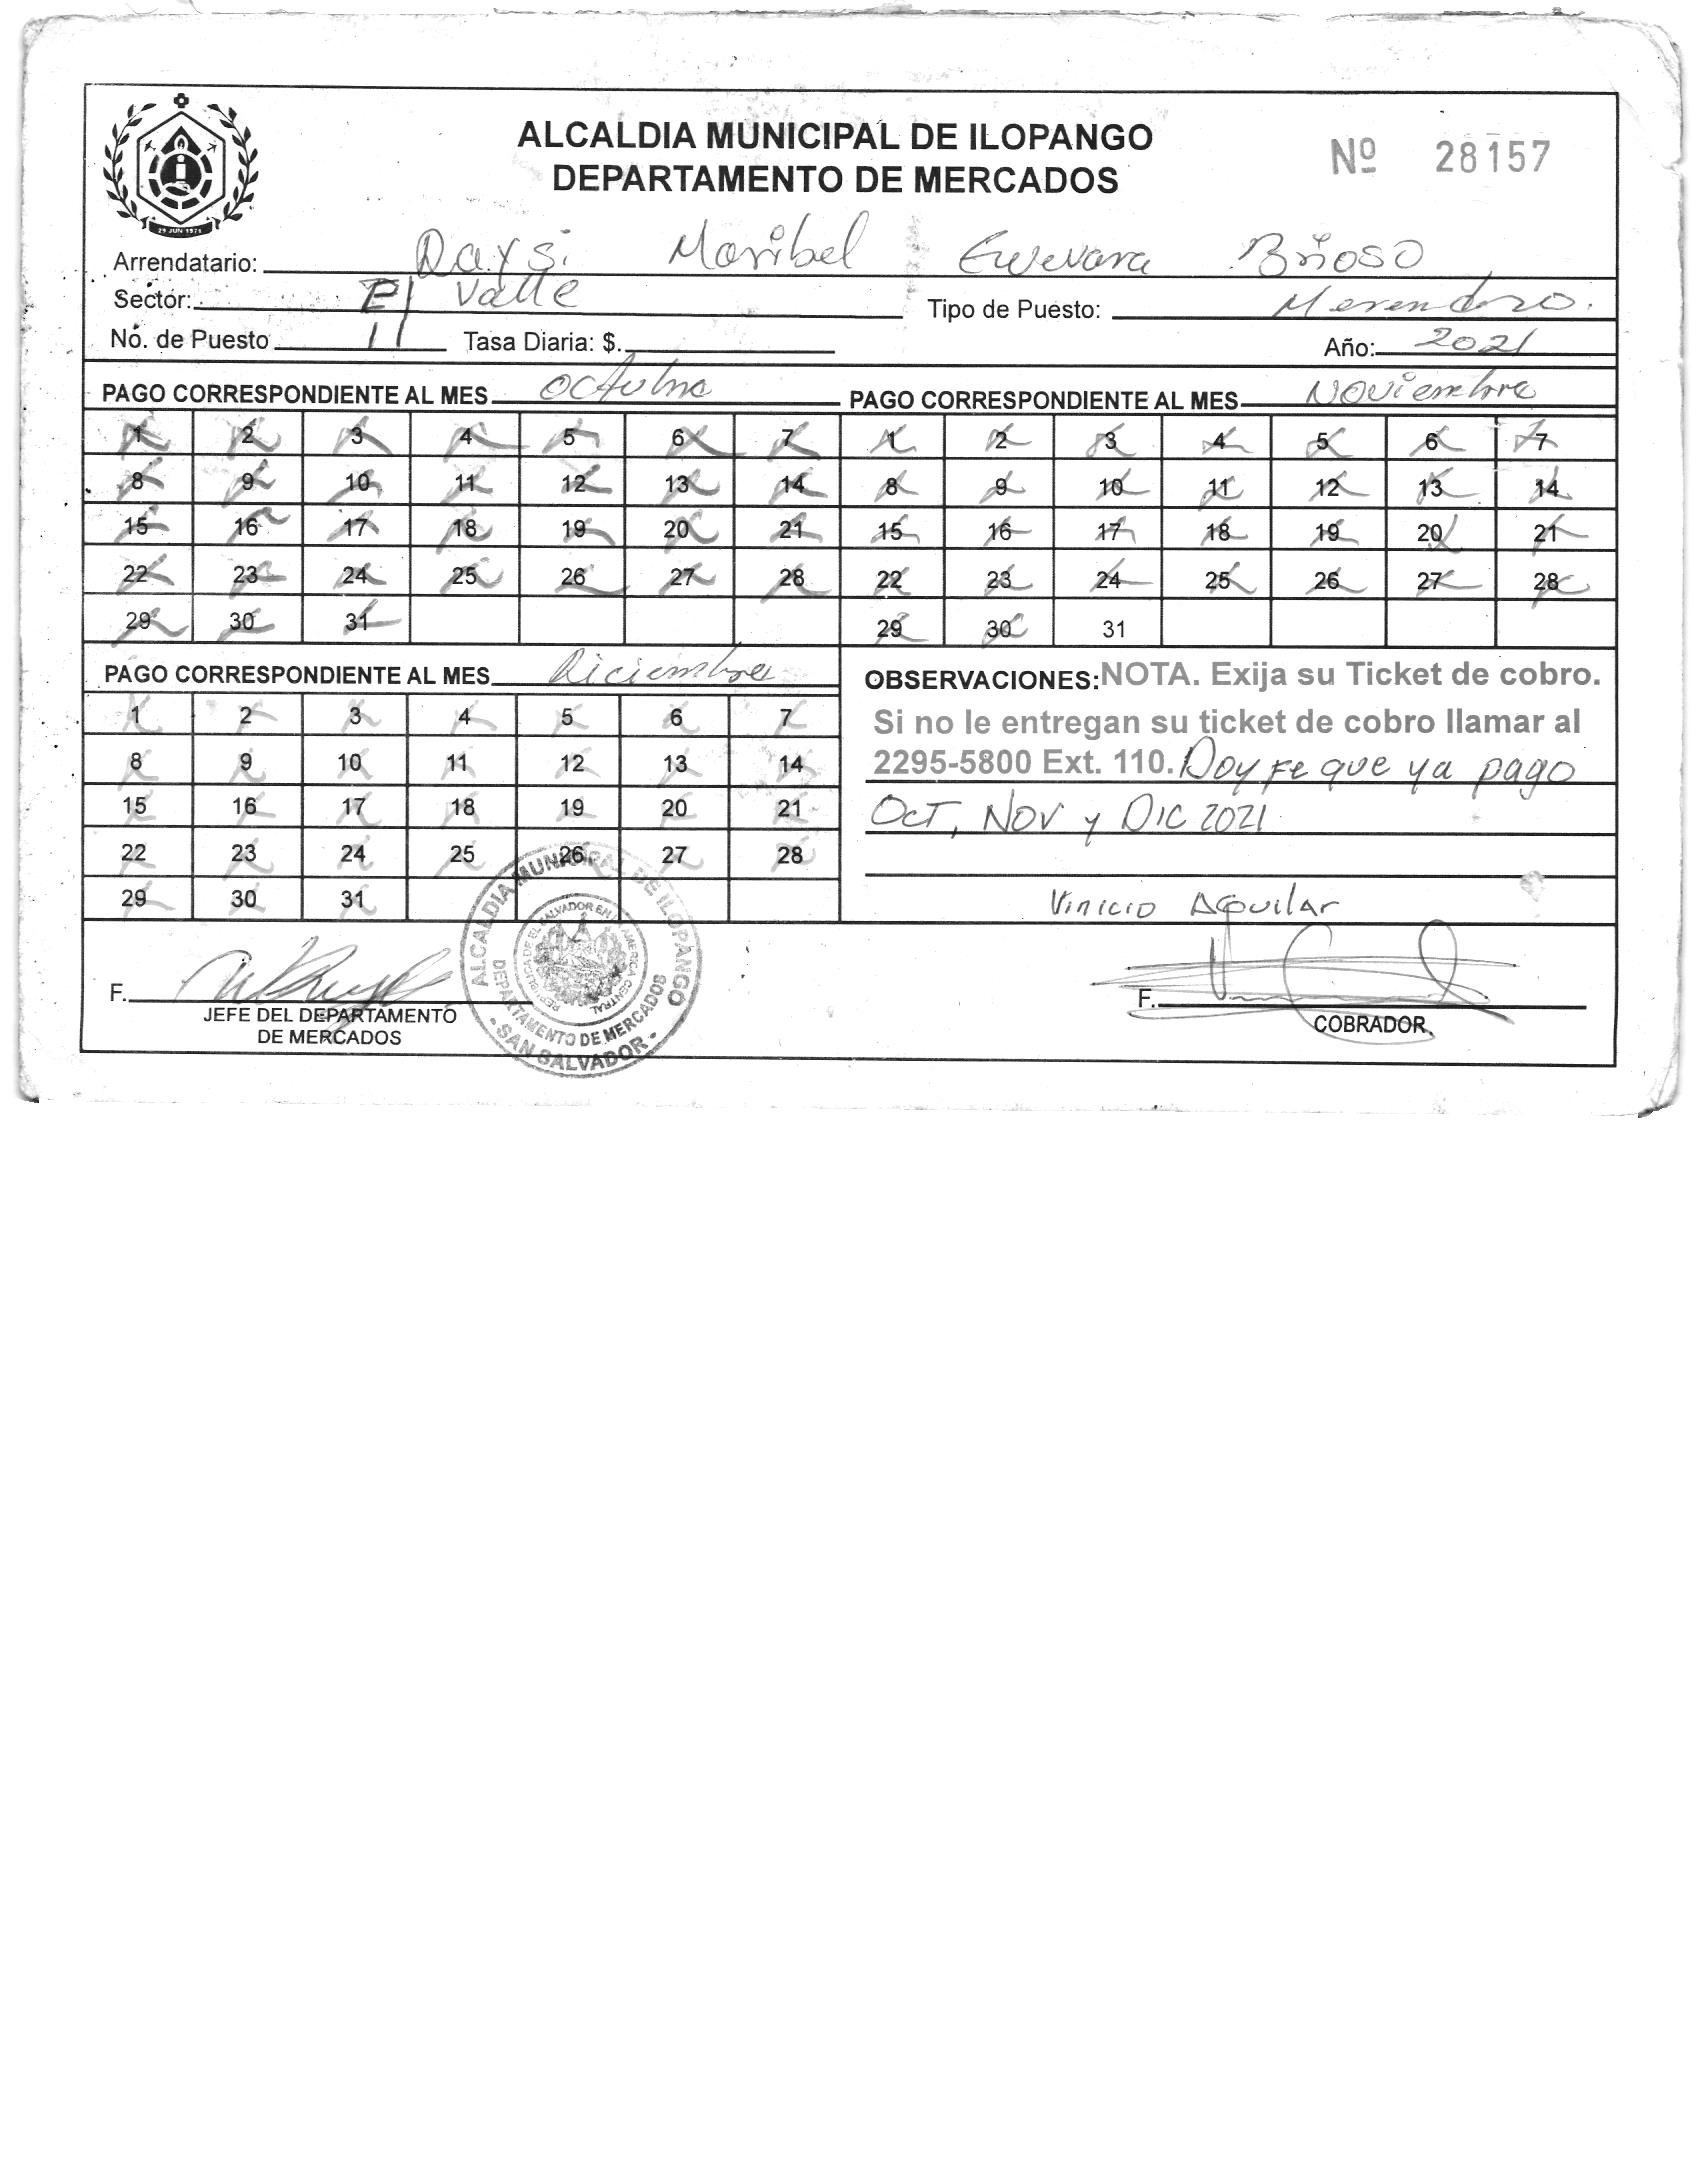 ALCALDIA MUNICIPAL DE ILOPANGO
DEPARTAMENTO DE MERCADOS
Nº 28157
29 JUN 1971
Arrendatario: Daysi Maribel Guevara Brioso
Sector: El Valle Tipo de Puesto: Merendero.
No. de Puesto 11 Tasa Diaria: $. Año: 2021
PAGO CORRESPONDIENTE AL MES octubre PAGO CORRESPONDIENTE AL MES Noviembre
1 2 3 4 5 6 7 1 2 3 4 5 6 7
8 9 10 11 12 13 14 8 9 10 11 12 13 14
15 16 17 18 19 20 21 15 16 17 18 19 20 21
22 23 24 25 26 27 28 22 23 24 25 26 27 28
29 30 31 29 30 31
PAGO CORRESPONDIENTE AL MES Diciembre
1 2 3 4 5 6 7
8 9 10 11 12 13 14
15 16 17 18 19 20 21
22 23 24 25 26 27 28
29 30 31
OBSERVACIONES: NOTA. Exija su Ticket de cobro.
Si no le entregan su ticket de cobro llamar al
2295-5800 Ext. 110. Doy fe que ya pago
Oct, Nov y Dic 2021
Vinicio Aguilar
F.
JEFE DEL DEPARTAMENTO
DE MERCADOS
ALCALDIA MUNICIPAL DE ILOPANGO
DEPARTAMENTO DE MERCADOS
SAN SALVADOR
REPUBLICA DE EL SALVADOR EN LA AMERICA CENTRAL
F.
COBRADOR.